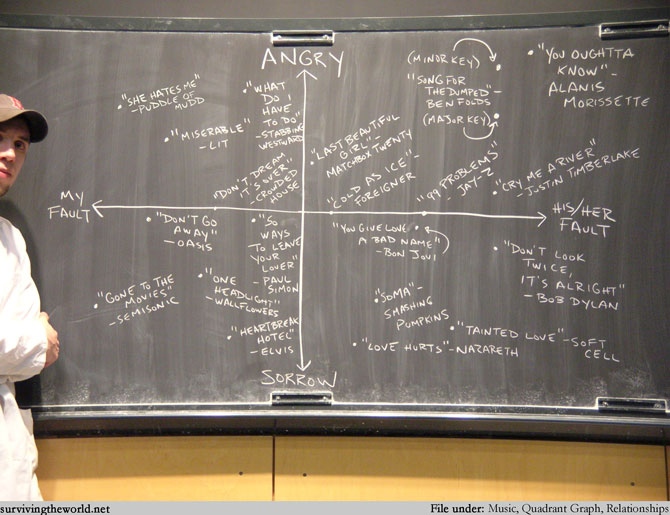 ANGRY
"SHE HATES ME" -
PUDDLE OF
MUDD
"MISERABLE" -
LIT
"WHAT
DO I
HAVE
TO DO"
- STABBING
WESTWARD
"DON'T DREAM
IT'S OVER"
- CROWDED
HOUSE
"LAST BEAUTIFUL
GIRL" -
MATCHBOX TWENTY
"COLD AS ICE" -
FOREIGNER
(MINOR KEY)
"SONG FOR
THE DUMPED"
BEN FOLDS
(MAJOR KEY)
"99 PROBLEMS"
- JAY-Z
"YOU OUGHTTA
KNOW" -
ALANIS
MORISSETTE
"CRY ME A RIVER"
- JUSTIN TIMBERLAKE
MY
FAULT
HIS/HER
FAULT
"DON'T GO
AWAY" -
OASIS
"GONE TO THE
MOVIES"
- SEMISONIC
"ONE
HEADLIGHT"
- WALLFLOWERS
"50
WAYS
TO LEAVE
YOUR
LOVER"
- PAUL
SIMON
"HEARTBREAK
HOTEL"
- ELVIS
"YOU GIVE LOVE
A BAD NAME"
- BON JOVI
"SOMA" -
SMASHING
PUMPKINS
"LOVE HURTS" - NAZARETH
"TAINTED LOVE" - SOFT
CELL
"DON'T LOOK
TWICE,
IT'S ALRIGHT"
- BOB DYLAN
SORROW
survivingtheworld.net
File under: Music, Quadrant Graph, Relationships